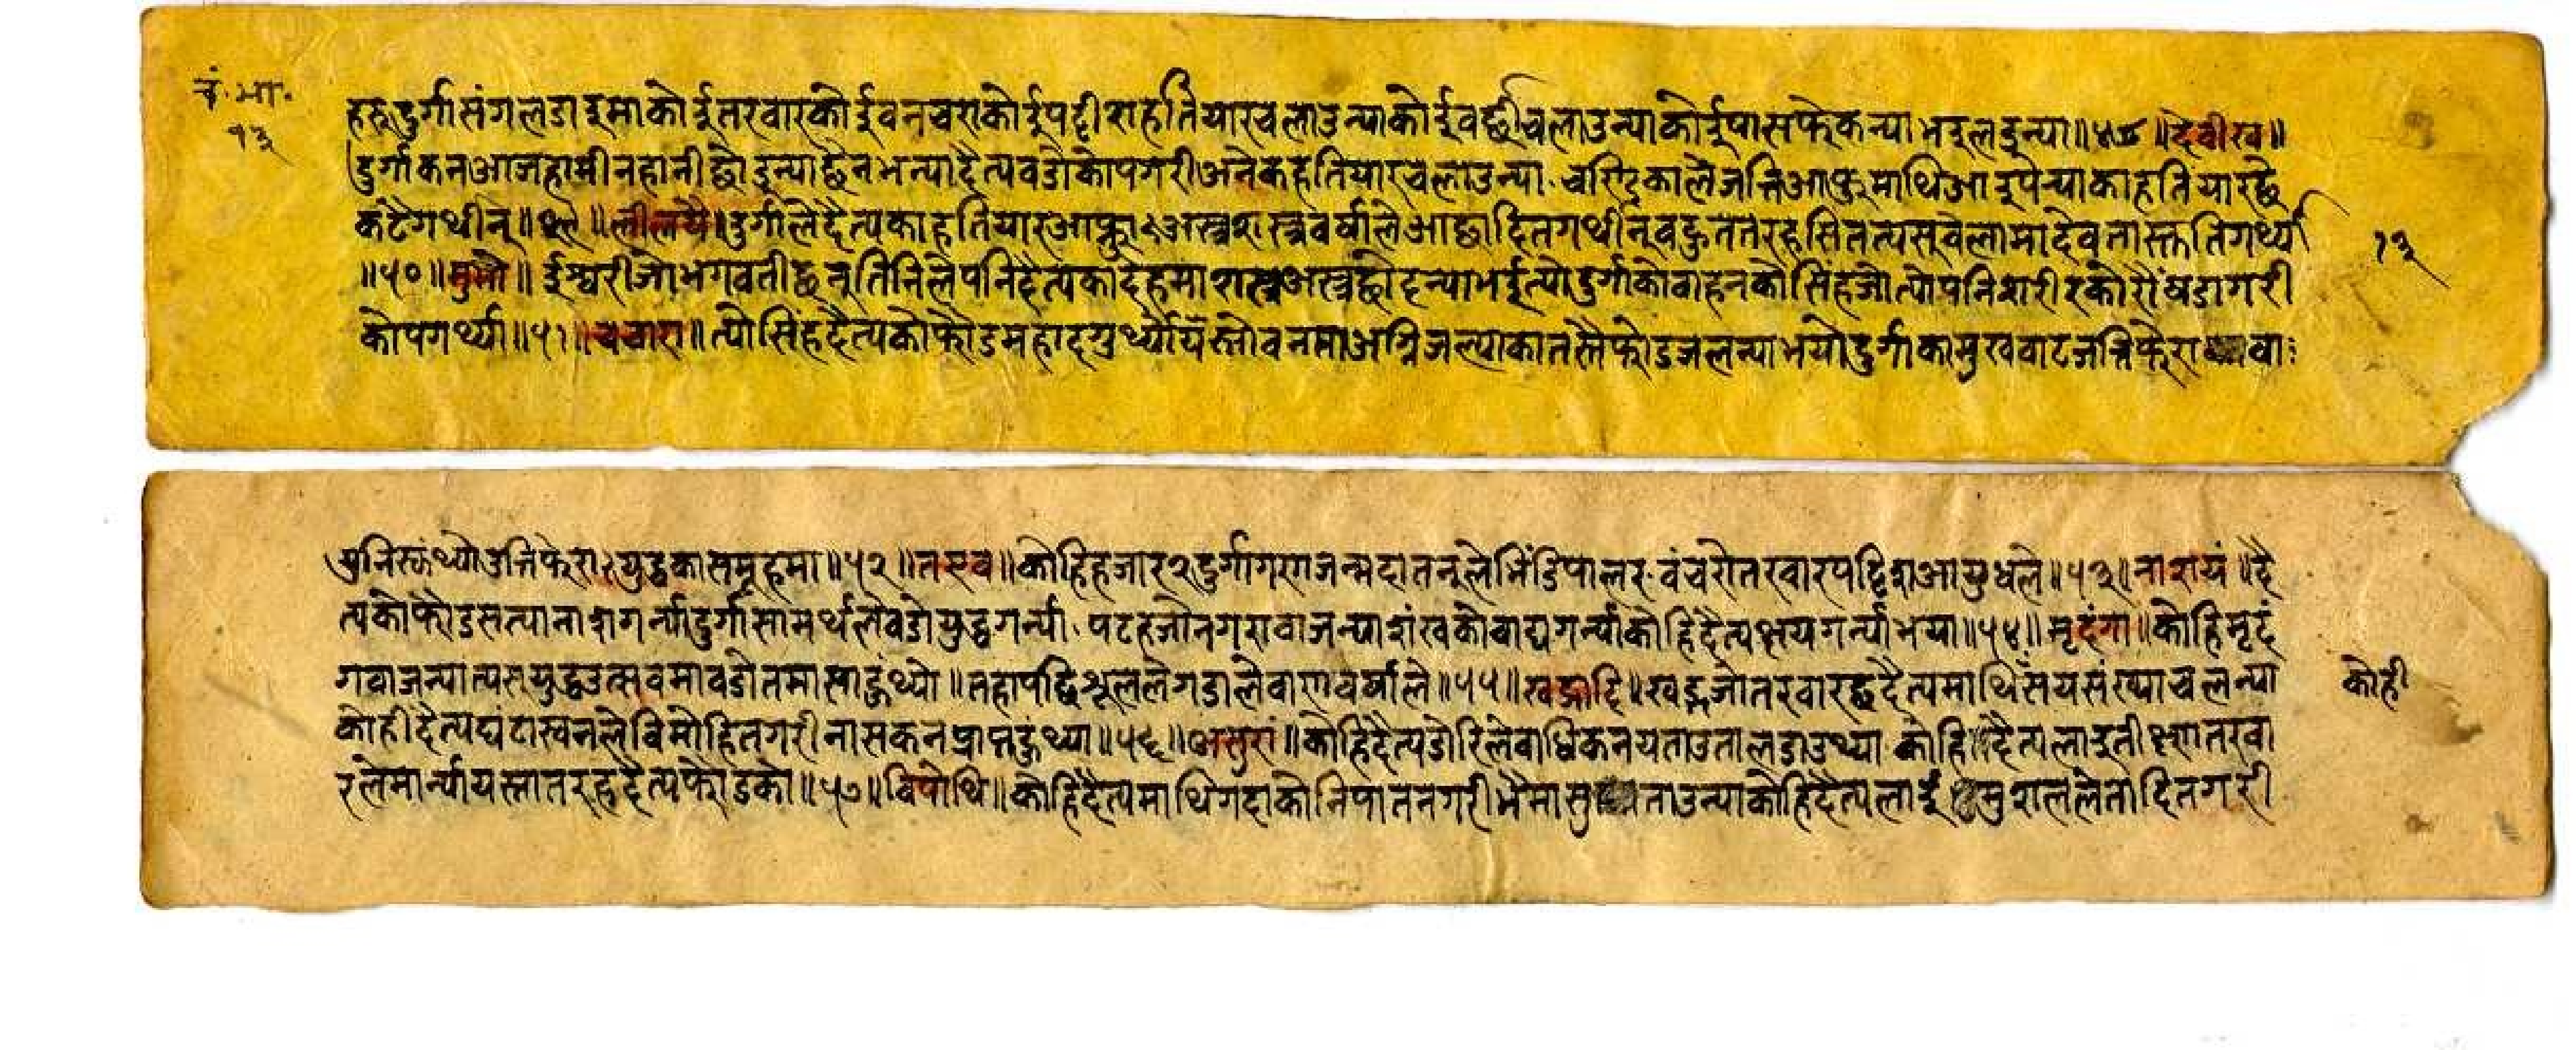 चं.भा.
१३
हरू दुर्गासंगलडाइमाकोई तरवारकोई वनचराकोई पट्टीशहतियारचलाउन्याकोई वर्छीचलाउन्याकोई पासफेकन्याभइलडन्या॥४८॥देवीख॥
दुर्गाकनआजहामीनहानीछौडुन्याछैनभन्यादैत्यवडोकोपगरीअनेकहतियारचलाउन्या.चण्डिकालेजत्तिआफुमाथिआइपुन्याकाहतियारछ
कटैगथीन्॥४९॥लीलयै॥दुर्गालेदैत्यकाहतियारआफ्ना२अस्त्रशस्त्रवर्षालेआछादितगथीन्वहुततेरहसितत्यसवेलामादेवतास्तुतिगर्थ्या
१३
॥५०॥मुमो॥ईश्वरीजोभगवतीछन्तिनिलेपनिदैत्यकादेहमाशस्त्रअस्त्रछोडन्याभईत्योदुर्गाकोवाहनकोसिंहजोत्योपनिशरीरकोरौंषडागरी
कोपगर्थ्यो॥५१॥चचारा॥त्योसिंहदैत्यकोफौडमहादगुर्थ्योयस्तोवनमाअग्निजल्याकातस्तैफौडजलन्याभयोदुर्गाकामुखवाटजत्तिफेरा वा
प्रनिस्कंथ्योउत्तिफेरा२युद्धकासमूहमा॥५२॥तएव॥कोहिहजार२दुर्गागराजन्मदातनूलेभिंडिपालर.वंचरोतरवारपट्टिशआयुधले॥५३॥नाशयं॥दै
त्यकोफौडसत्यानाशगर्न्यादुर्गासामर्थलेवडोयुद्धगर्न्या.पटहजोनगरावाजन्याशंखकोवाद्यगर्न्याकोहिदैत्यक्षयगर्न्याभया॥५४॥मृदंगा॥कोहिमृदं
गवाजन्यात्यसयुद्धउत्सवमावडोतमासाहुंथ्यो॥तहापछित्रिशूललेगडालेवाणवर्षाले॥५५॥खड्गादि॥खड्गजोतरवारछदैत्यमाथिसयसंख्याचलन्या
कोही
कोहीदैत्यघंटास्वनलेविमोहितगरीनासकनप्राप्तहुंथ्या॥५६॥असुरां॥कोहिदैत्यडोरिलेवाधिकनयताउतालडाउथ्या.कोहिदैत्यलाइतीक्ष्णतरवा
रलेमार्न्यायस्तातरहदैत्यफौडका॥५७॥विपोथि॥कोहिदैत्यमाथिगदाकोनिपातनगरीभैमासु ताउन्याकोहिदैत्यलाईमुशललेताडितगरी